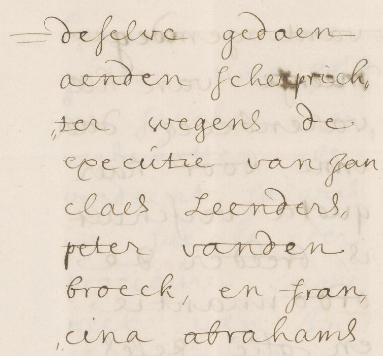 deselve gedaen
aenden scherprich„
„ter wegens de
executie van Jan
claes Leenders„
peter vanden
broeck, en fran„
„cina abrahams